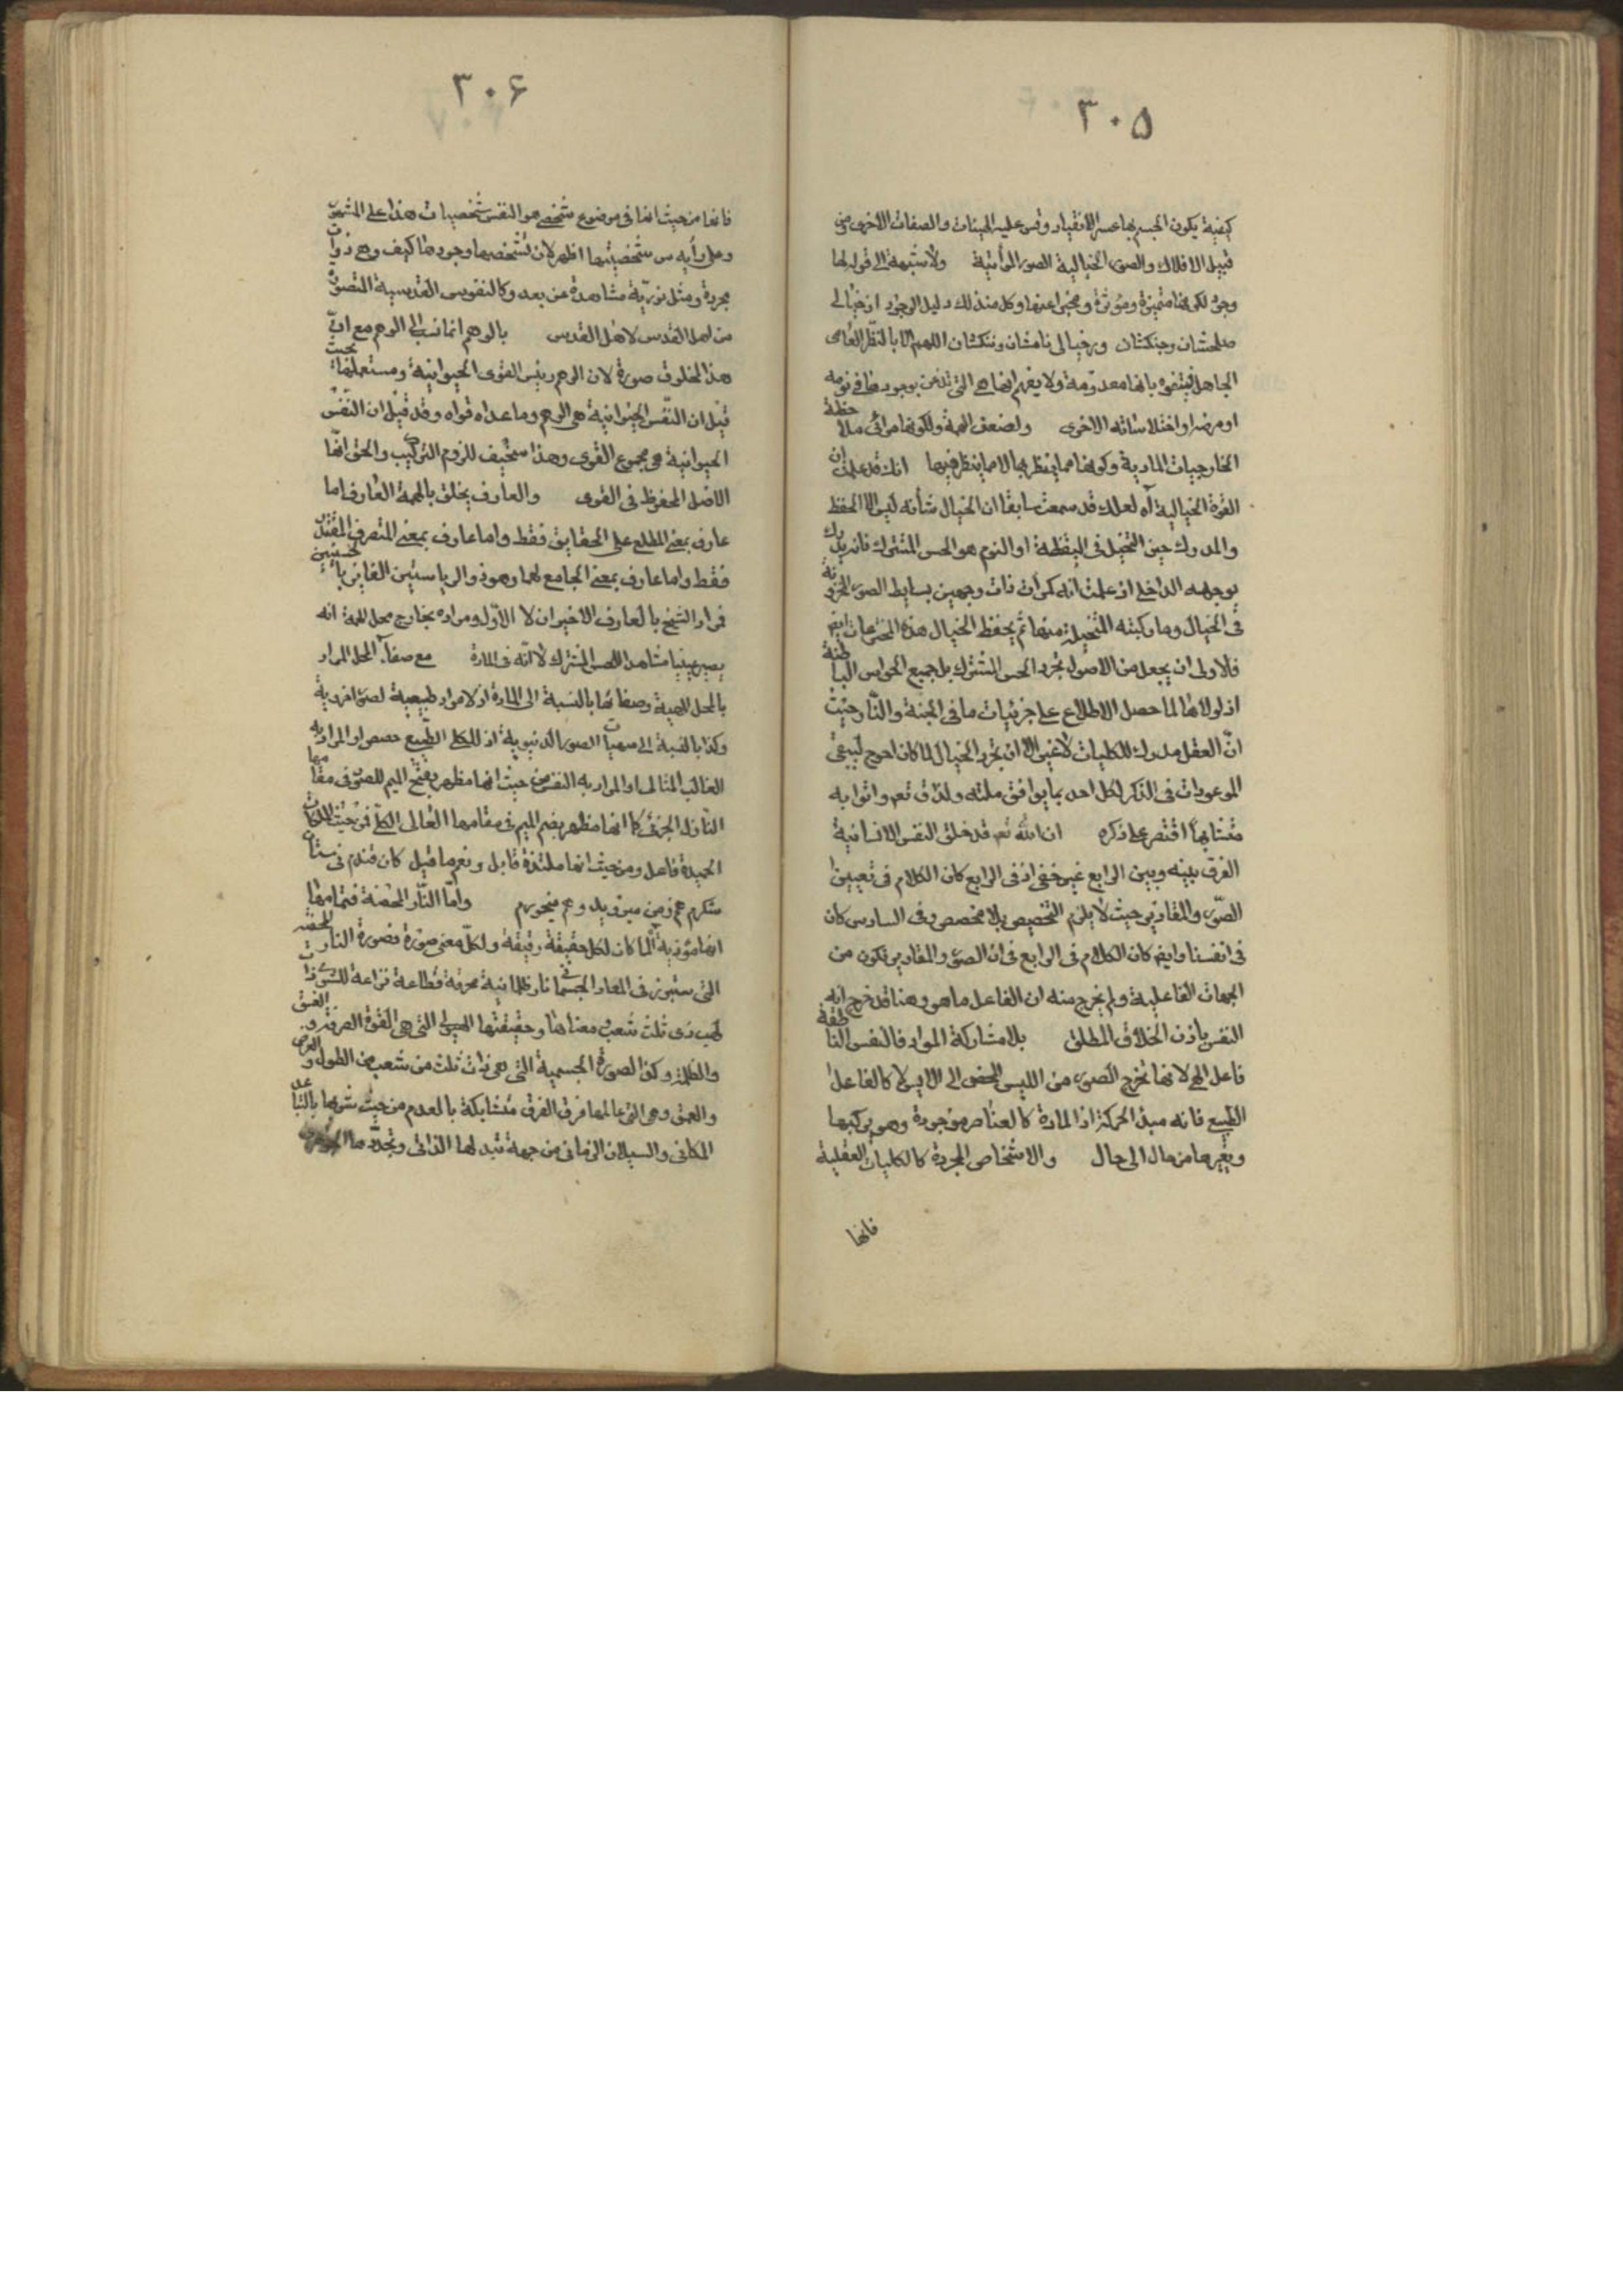 ٣٠۵
كيفية يكون الجسم بها عسر الانقياد وقس عليه الهيئات والصفات الاخرى من
قبيل الافلاك والصور الخيالية الصور المرأتية ولا شبهة الى قوله لها
وجود لكونها متميزة ومؤثرة ومخبرا عنها وكل منذلك دليل الوجود از خيالى
صلحشان وجنكشان وزخيالى نامشان وننكشان اللهم الا بالنظر العامى
الجاهل فيتفوه بانها معدومة ولا يفهم انها هي التي تذعن بوجودها في نومه
او مرضه او اختلاساته الاخرى ولضعف الهمة ولكونها مرائى ملاحظة
الخارجيات المادية وكونها مما ينظر بها لا مما ينظر فيها انك قد علمت ان
القوة الخيالية آه لعلك قد سمعت سابقا ان الخيال شأنه ليس الا الحفظ
والمدرك حين التخيل في اليقظة او النوم هو الحس المشترك فانه يدرك
بوجهه الداخلى اذ علمت انه كمرآت ذات وجهين بسايط الصور المخزونة
في الخيال وما ركبته المتخيلة منها ثم يحفظ الخيال هذه المخترعات ايض
فالاولى ان يجعل من الاصول تجرد الحس المشترك بل جميع الحواس الباطنة
اذ لولاها لما حصل الاطلاع على جزئيات ما في الجنة والنار حيث
ان العقل مدرك للكليات لا غير الا ان تجرد الخيال لما كان احوج ليبقى
الموعودات في الذكر لكل احد بما يوافق ملته ولذوق تعم واتوا به
متشابها اقتصر على ذكره ان الله تع قد خلق النفس الانسانية
الفرق بينه وبين الرابع غير خفى اذ في الرابع كان الكلام في تعيين
الصور والمقادير حيث لا يلزم التخصيص بلا مخصص وفى السادس كان
في انفسنا وايض كان الكلام في الرابع في ان الصور والمقادير تكون من
الجهات الفاعلية ولم يخرج منه ان الفاعل ما هو وهنا قد خرج انه
النفس باذن الخلاق المطلق بلا مشاركة المواد فالنفس الناطقة
فاعل الهى لانها تخرج الصور من الليس المحض الى الايس لا كالفاعل
الطبيعى فانه مبدء الحركة اذ المادة كالعناصر موجودة وهو يركبها
ويغيرها من حال الى حال والاشخاص المجردة كالكليات العقلية
فانها
٣٠۶
فانها من حيث انها في موضوع شخصى هو النفس شخصيات هذا على المشهور
وعلى رأيه س شخصيتها اظهر لان تشخصها وجودها كيف وهى ذوات
مجردة ومثل نورية مشاهدة عن بعد وكالنفوس القدسية المتصورة
من اهل القدس لاهل القدس بالوهم انما نسب الى الوهم مع ان
هذا المخلوق صورة لان الوهم رئيس القوى الحيوانية ومستعملها بحيث
قيل ان النفس الحيوانية هى الوهم وما عداه قواه وقد قيل ان النفس
الحيوانية هى مجموع القوى وهذا سخيف للزوم التركيب والحق انها
الاصل المحفوظ في القوى والعارف يخلق بالهمة العارف اما
عارف بمعنى المطلع على الحقايق فقط واما عارف بمعنى المتصرف المقتدر
فقط واما عارف بمعنى الجامع لهما وهو ذو الرياستين الفايز بالحسنيين
فمراد الشيخ بالعارف الاخيران لا الاول ومراده بخارج محل الهمة انه
يصير عينيا مشاهدا للحس المشترك لا انه في المادة مع صفاء المحل المراد
بالمحل الهيئة وصفائها بالنسبة الى المادة اذ لا مواد طبيعية لصور اخروية
وكذا بالنسبة الى مهيات الصور الدنيوية اذ للكلى الطبيعى حصص او المراد به
القالب المثالى او المراد به النفس من حيث انها مظهر بفتح الميم للصور في مقامها
النازل الجزئى كما انها مظهر بضم الميم في مقامها العالى الكلى فمن حيث الملكات
الحميدة فاعل ومن حيث انها ملتذة قابل ونعم ما قيل كان قندم نيستان
شكرم هم زمن ميرويد وهم ميخورم واما النار المحضة فتمامها
انها مؤذية لما كان لكل حقيقة رقيقة ولكل معنى صورة فصورة النار المحضة
التي ستبرز في المعاد الجسمانى نار ظلمانية محرقة قطاعة نزاعة للشوى ذات
لهب ذى ثلث شعب ومعناها وحقيقتها الهيولى التي هى القوة الصرفة والغسق
والظلمة وكذا الصورة الجسمية التي هى ذات ثلث من شعب من الطول والعرض
والعمق وهى التي عالمها فرق الفرق متشابكة بالعدم من حيث شوبها بالتباعد
المكانى والسيلان الزمانى من جهة تبدلها الذاتى وتجددها